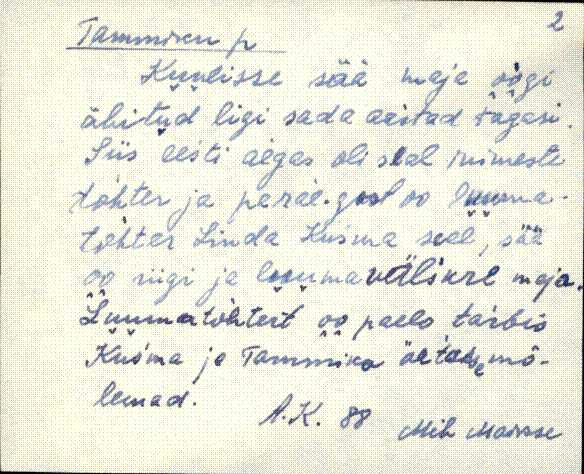 2
Tammiku p
Kuulisse sää maja oogi
ähitud ligi sada aastad tagasi.
Siis eesti aegas oli seal inimeste
tohter ja peräe-gool oo luuma-
tohter Linda Kusma seel, sää
oo riigi ja luuma välskre maja.
Luumatohtert oo paelo tarbis
Kusma ja Tammiko äitavemõ-
lemad.
A.K. 88 Mih